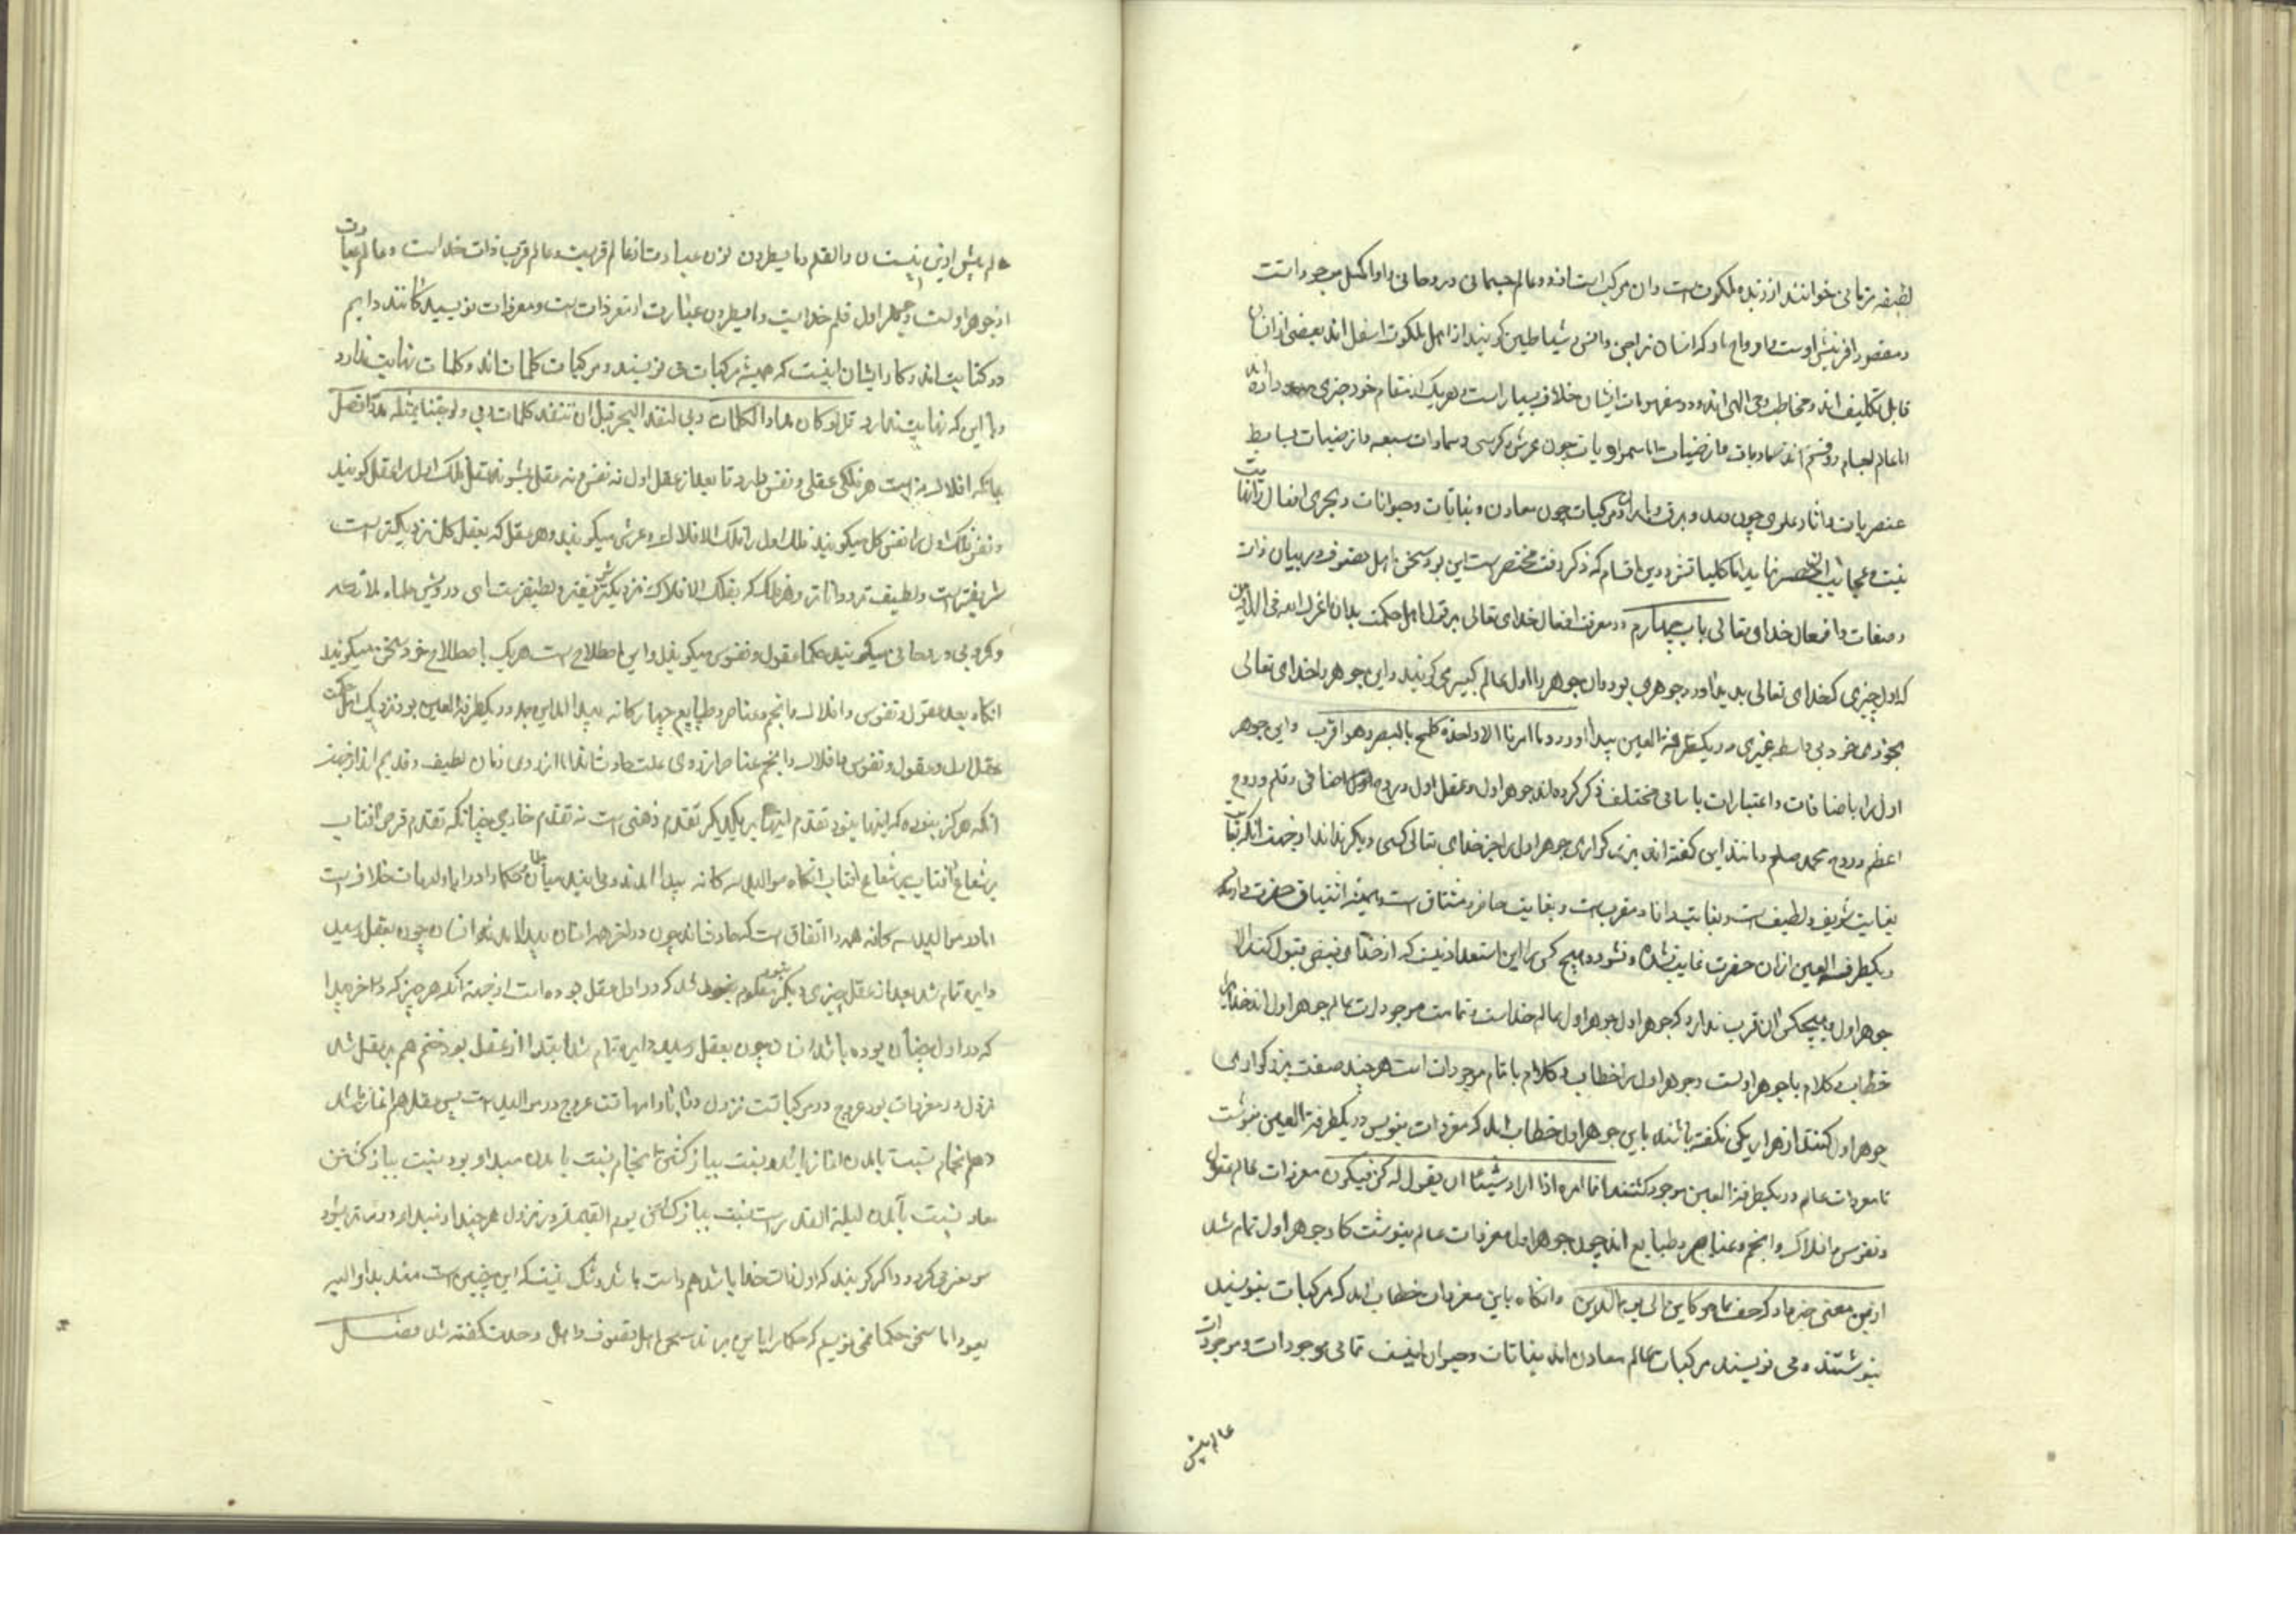 لطیفه ربانی خوانند از زبده ملکوتست و ان مرکب است از دو عالم جسمانی و روحانی و او اکمل موجوداتست
و مقصود افرینش اوست و ارواح ناری که انسان را جن و شیاطین گویند از اهل ملکوت اسفل اند بعضی ازان
قابل تکلیف اند و مخاطب وحی الهی اند و در مفهومات ایشان خلاف بسیار است و هریک از مقام خود خبری داده اند
اما عالم اجسام دو قسم اند سماویات و ارضیات اما سماویات چون عرش و کرسی و سماوات سبعه و ارضیات بسایط
عنصریات و اثار علوی چون رعد و برق و باران و مرکبات چون معادن و نباتات و حیوانات و مجری افعال را نهایت
نیست و عجایب انحصر نماید اما کلیاتش درین اقسام که ذکر رفت مختصرست این بود سخن اهل تصوف در بیان ذات
و صفات و افعال خدای تعالی باب چهارم در معرفت افعال خدای تعالی بر قول اهل حکمت بدان اعزک الله فی الدارین
که اول چیزی که خدای تعالی بدید اورد جوهری بود و ان جوهر را اول عالم کبیر می گویند و این جوهر را خدای تعالی
بخودی خود بی واسطه چیزی در یکطرفة العین پیدا اورد و ما امرنا الا واحدة کلمح بالبصر و هو اقرب و این جوهر
اول را باضافات و اعتبارات باسامی مختلف ذکر کرده اند جوهر اول و عقل اول و روح اضافی و قلم و روح
اعظم و روح محمد صلعم و مانند این گفته اند بزرگواری جوهر اول را جز خدای تعالی کسی دیگر نداند از جهت انکه بغایت
بغایت شریف و لطیف است و بغایت دانا و مقرب است و بغایت حاضر و مشتاق است و همیشه اشتیاق حضرت دارد که
یکطرفة العین ازان حضرت غایب نشده و نشود و هیچ کس را این استعداد نیست که از خدای فیض قبول کند الا
جوهر اول و هیچکس ان قرب ندارد که جوهر اول جوهر اول عالم خداست و تمامت موجودات عالم جوهر اول اند خدای را
خطاب و کلام با جوهر اولست و جوهر اول را خطاب و کلام با تمام موجودات است هرچند صفت بزرگواری
جوهر اول کنند از هزار یکی نگفته باشند باین جوهر اول خطاب امد که مفردات بنویس در یکطرفة العین بنوشت
تا مفردات عالم در یکطرفة العین موجود گشتند انما امره اذا اراد شیئا ان یقول له کن فیکون مفردات عالم عقول
و نفوس و افلاک و انجم و عناصر و طبایع اند چون جوهر اول مفردات عالم بنوشت کار جوهر اول تمام شد
ازین معنی خبر داد که جف القلم بما هو کاین الی یوم الدین وانگاه باین مفردات خطاب امد که مرکبات بنویسید
بنوشتند و می نویسند مرکبات عالم معادن اند نباتات و حیوان اینست تمامی موجودات و موجودات
عالم بیش
عالم بیش ازین نیست ن والقلم و ما یسطرون نون عبارت از عالم قربیت و عالم قرب ذات خداست و عالم عبارت
از جوهر اولست و جوهر اول قلم خداست و ما یسطرون عبارت از مفردات است و مفردات نویسندگانند دایم
در کتابت اند و کار ایشان اینست که همیشه مرکبات می نویسند و مرکبات کلمات اند و کلمات نهایت ندارد
با این که نهایت ندارد قل لو کان البحر مدادا لکلمات ربی لنفد البحر قبل ان تنفد کلمات ربی ولو جئنا بمثله مددا فصل
بدانکه افلاک نه است هر فلکی عقلی و نفسی دارد تا بعد از عقل اول نه نفس و نه عقل بشوند عقل فلک اول را عقل گویند
و نفس فلک اول را نفس کل میگویند فلک اول را فلک الافلاک و عرش میگویند و هر عقل که بعقل کل نزدیکترست
شریفترست و لطیف تر و داناتر و هر فلک که بفلک الافلاک نزدیکتر شریفتر و لطیفترست ای درویش علما ملائکه
و کروبی و روحانی میگویند حکما عقول و نفوس میگویند و این اصطلاح است هریک باصطلاح خود سخن میگویند
انگاه بعد عقول و نفوس و افلاک و انجم و عناصر و طبایع چهارگانه پیدا امد این جمله در یکطرفة العین بود نزدیک اهل حکمت
عقل اول و عقول و نفوس و افلاک و انجم و عناصر از روی علت حادث اند اما از روی زمان لطیف و قدیم اند از جهت
انکه هرگز نبوده که اینها نبود تقدم اینها بر یکدیگر تقدم ذهنی است نه تقدم خارجی چنانکه تقدم قرص افتاب
بر شعاع افتاب بر شعاع افتاب انگاه موالید سه گانه پیدا امدند و می ایند میان علما و حکما در ابا و امهات خلاف است
اما در موالید سه گانه همه را اتفاق است که حادث اند چون در اخر همه انسان پیدا امد انسان چون بعقل رسید
دایره تمام شد بعد از عقل چیزی دیگر نبود معلوم شد که در اول عقل بوده است از جهت انکه هر چیز که در اخر پیدا
که در اول چنان بوده باشد انسان چون بعقل رسید دایره تمام شد ابتدا از عقل بود ختم هم بر عقل شد
نزول در مفردات بود عروج در مرکبات نزول در ابا و امهات عروج در موالید است پس عقل هم اغاز شد
و هم انجام نسبت بامدن اغاز باشد و نسبت بباز گشتن انجام نسبت بامدن مبدا او بود نسبت بباز گشتن
معاد نسبت بآمدن لیلة القدر است نسبت بباز گشتن یوم القیمة در نزول هرچند از مبدا دورتر میشود
اما اگر گویند که اول ذات خدا باشد هم راست باشد و شک نیست که این چنین است منه بدا و الیه
یعود اما سخن حکما می نویسم که حکما برانند سخن اهل تصوف و اهل وحدت گفته شد فصل